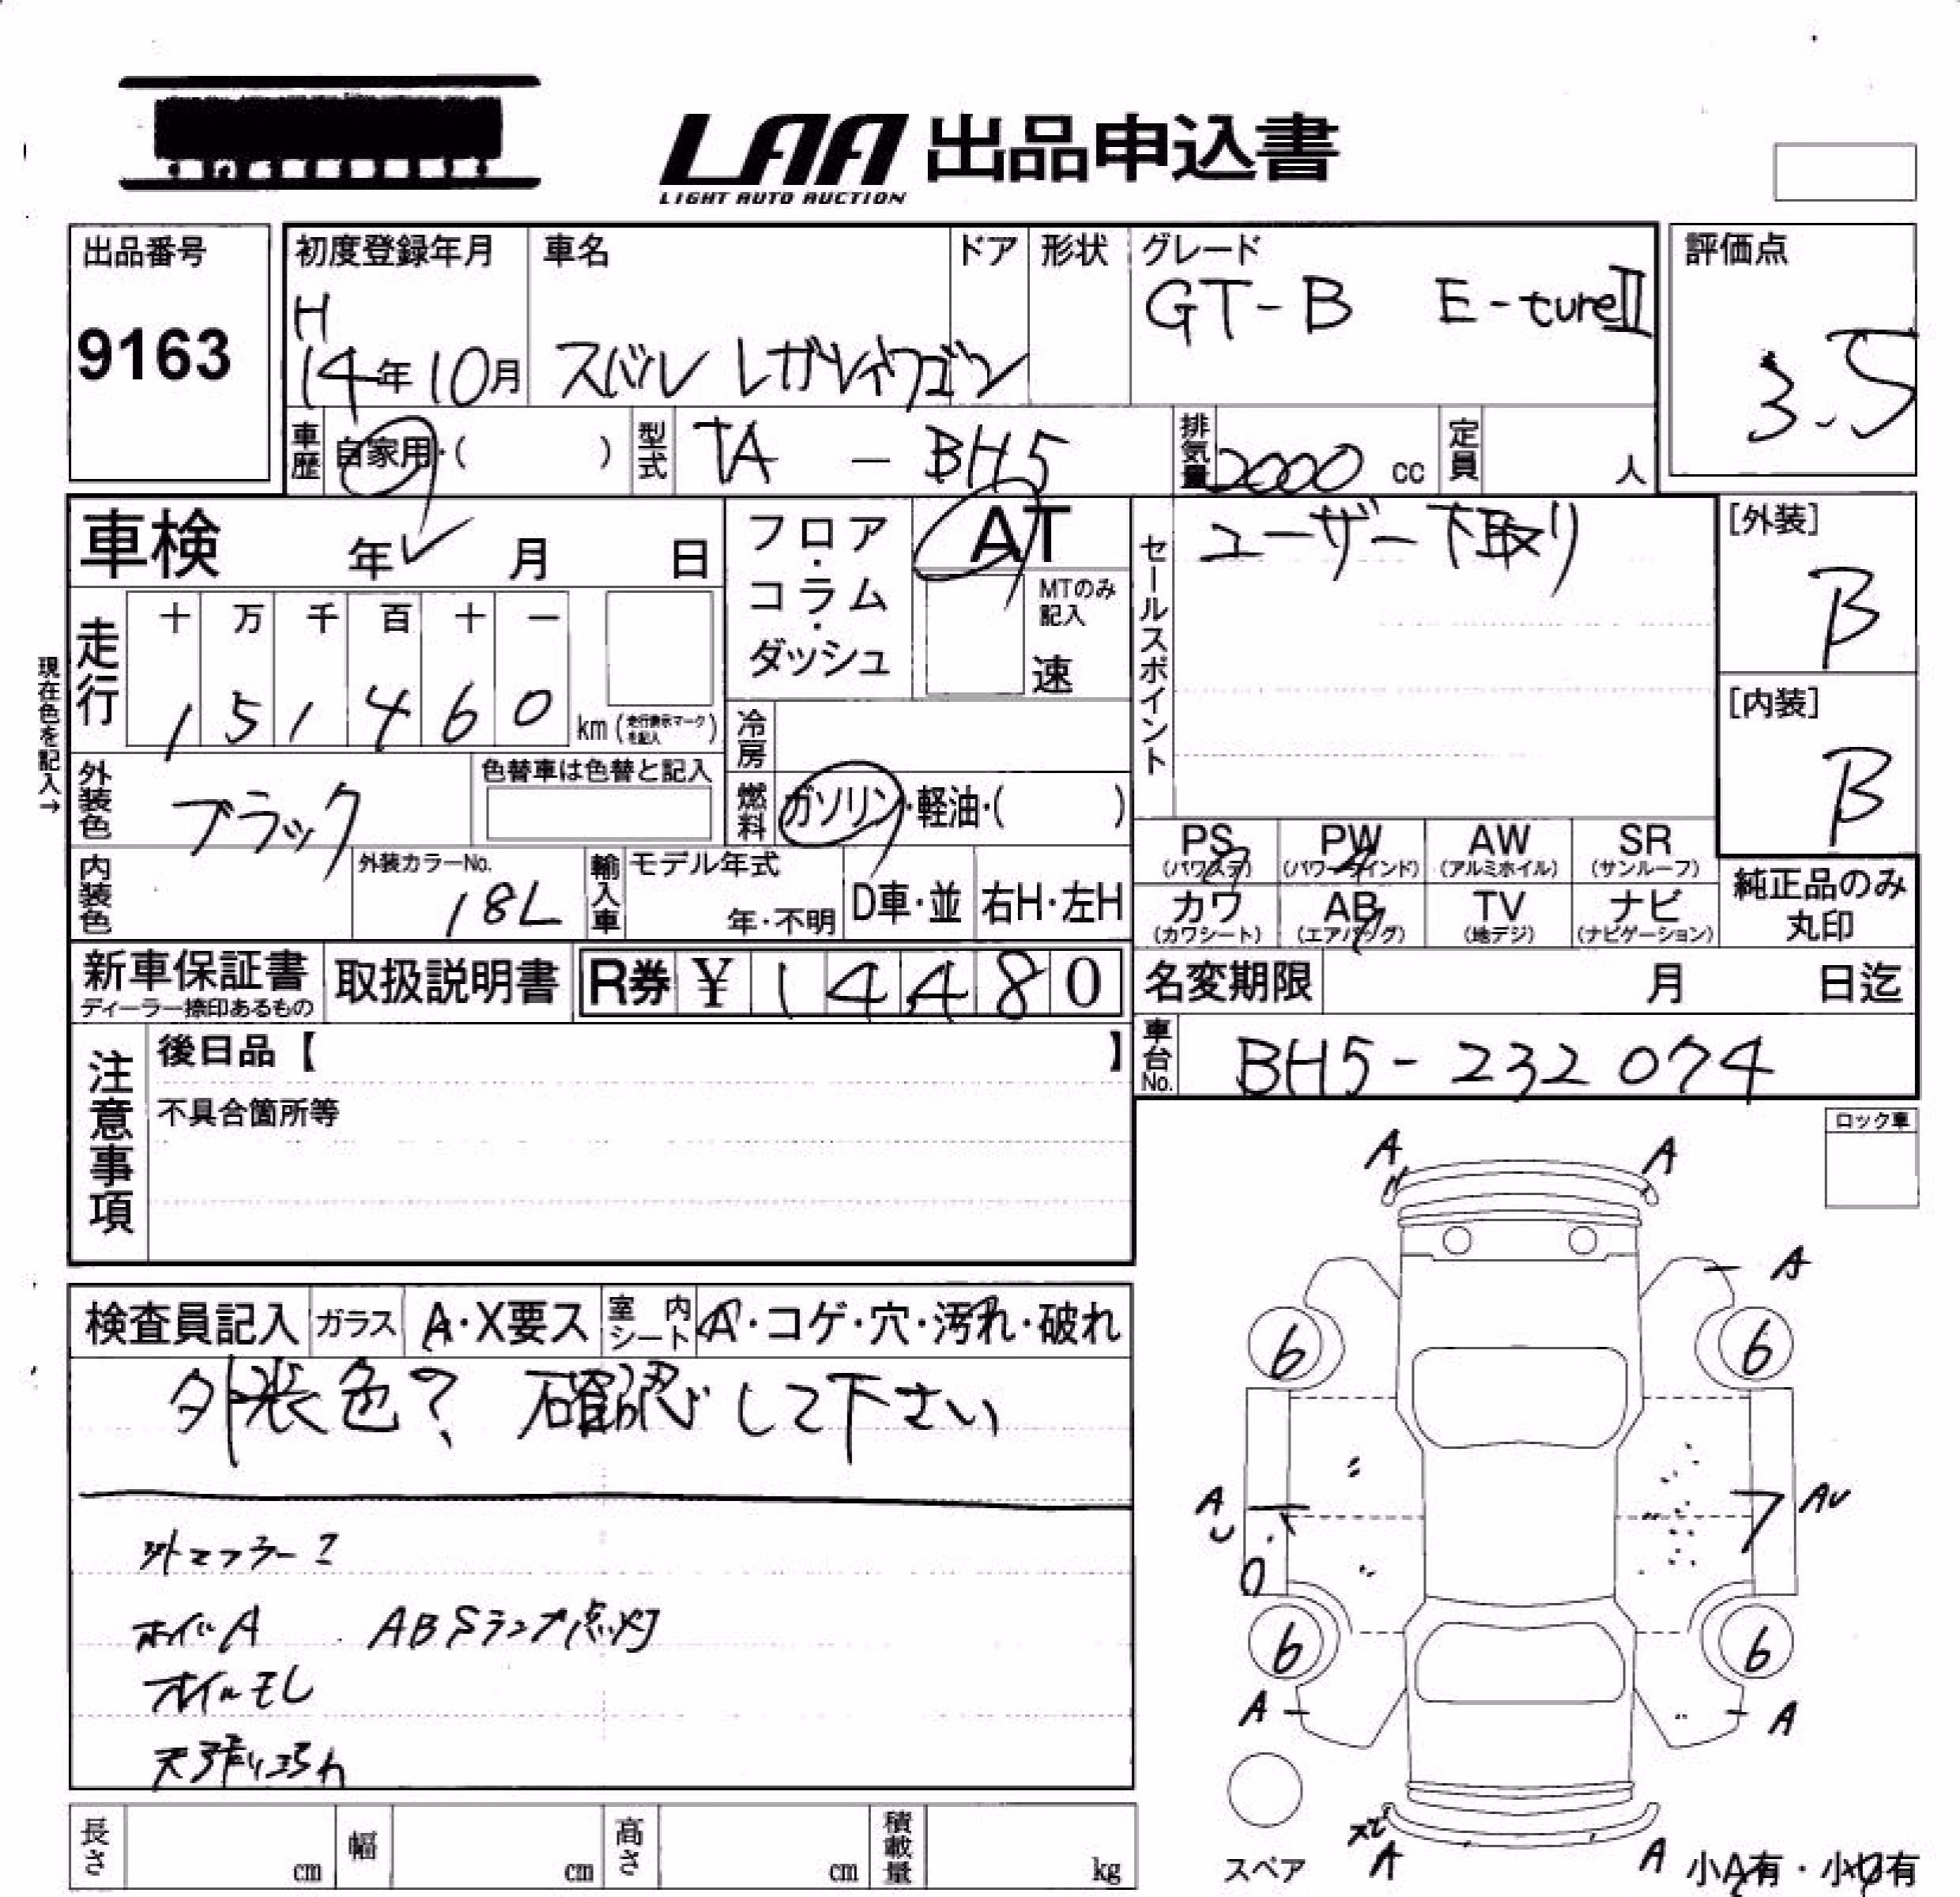 LAA 出品申込書
LIGHT AUTO AUCTION
出品番号
9163
初度登録年月
H
14年10月
車名
スバル レガシィワゴン
ドア
形状
グレード
GT-B E-tureII
評価点
3.5
車歴
自家用・( )
型式
TA - BH5
排気量
2000 cc
定員
人
車検 年 月 日
フロア・コラム・ダッシュ
AT
MTのみ記入
速
セールスポイント
ユーザー下取り
[外装]
B
[内装]
B
現在色を記入→
走行
十 万 千 百 十 一
1 5 1 4 6 0
km (走行表示マークを記入)
冷房
燃料
ガソリン・軽油・( )
外装色
ブラック
色替車は色替と記入
内装色
外装カラーNo.
18L
輸入車
モデル年式
年・不明
D車・並
右H・左H
PS (パワステ)
PW (パワーウインド)
AW (アルミホイル)
SR (サンルーフ)
カワ (カワシート)
AB (エアバッグ)
TV (地デジ)
ナビ (ナビゲーション)
純正品のみ丸印
新車保証書
ディーラー捺印あるもの
取扱説明書
R券 ¥ 1 4 4 8 0
名変期限 月 日迄
車台No.
BH5-232074
注意事項
後日品【 】
不具合箇所等
ロック車
検査員記入
ガラス
A・X要ス
室内シート
A・コゲ・穴・汚れ・破れ
外装色? 確認して下さい
外マフラー?
ホイルA ABSランプ点灯
オイルモレ
天張り汚れ
A A
A
6 6
A AU
U
6 6
A A
A A
スペア
小A有・小U有
長さ cm
幅 cm
高さ cm
積載量 kg